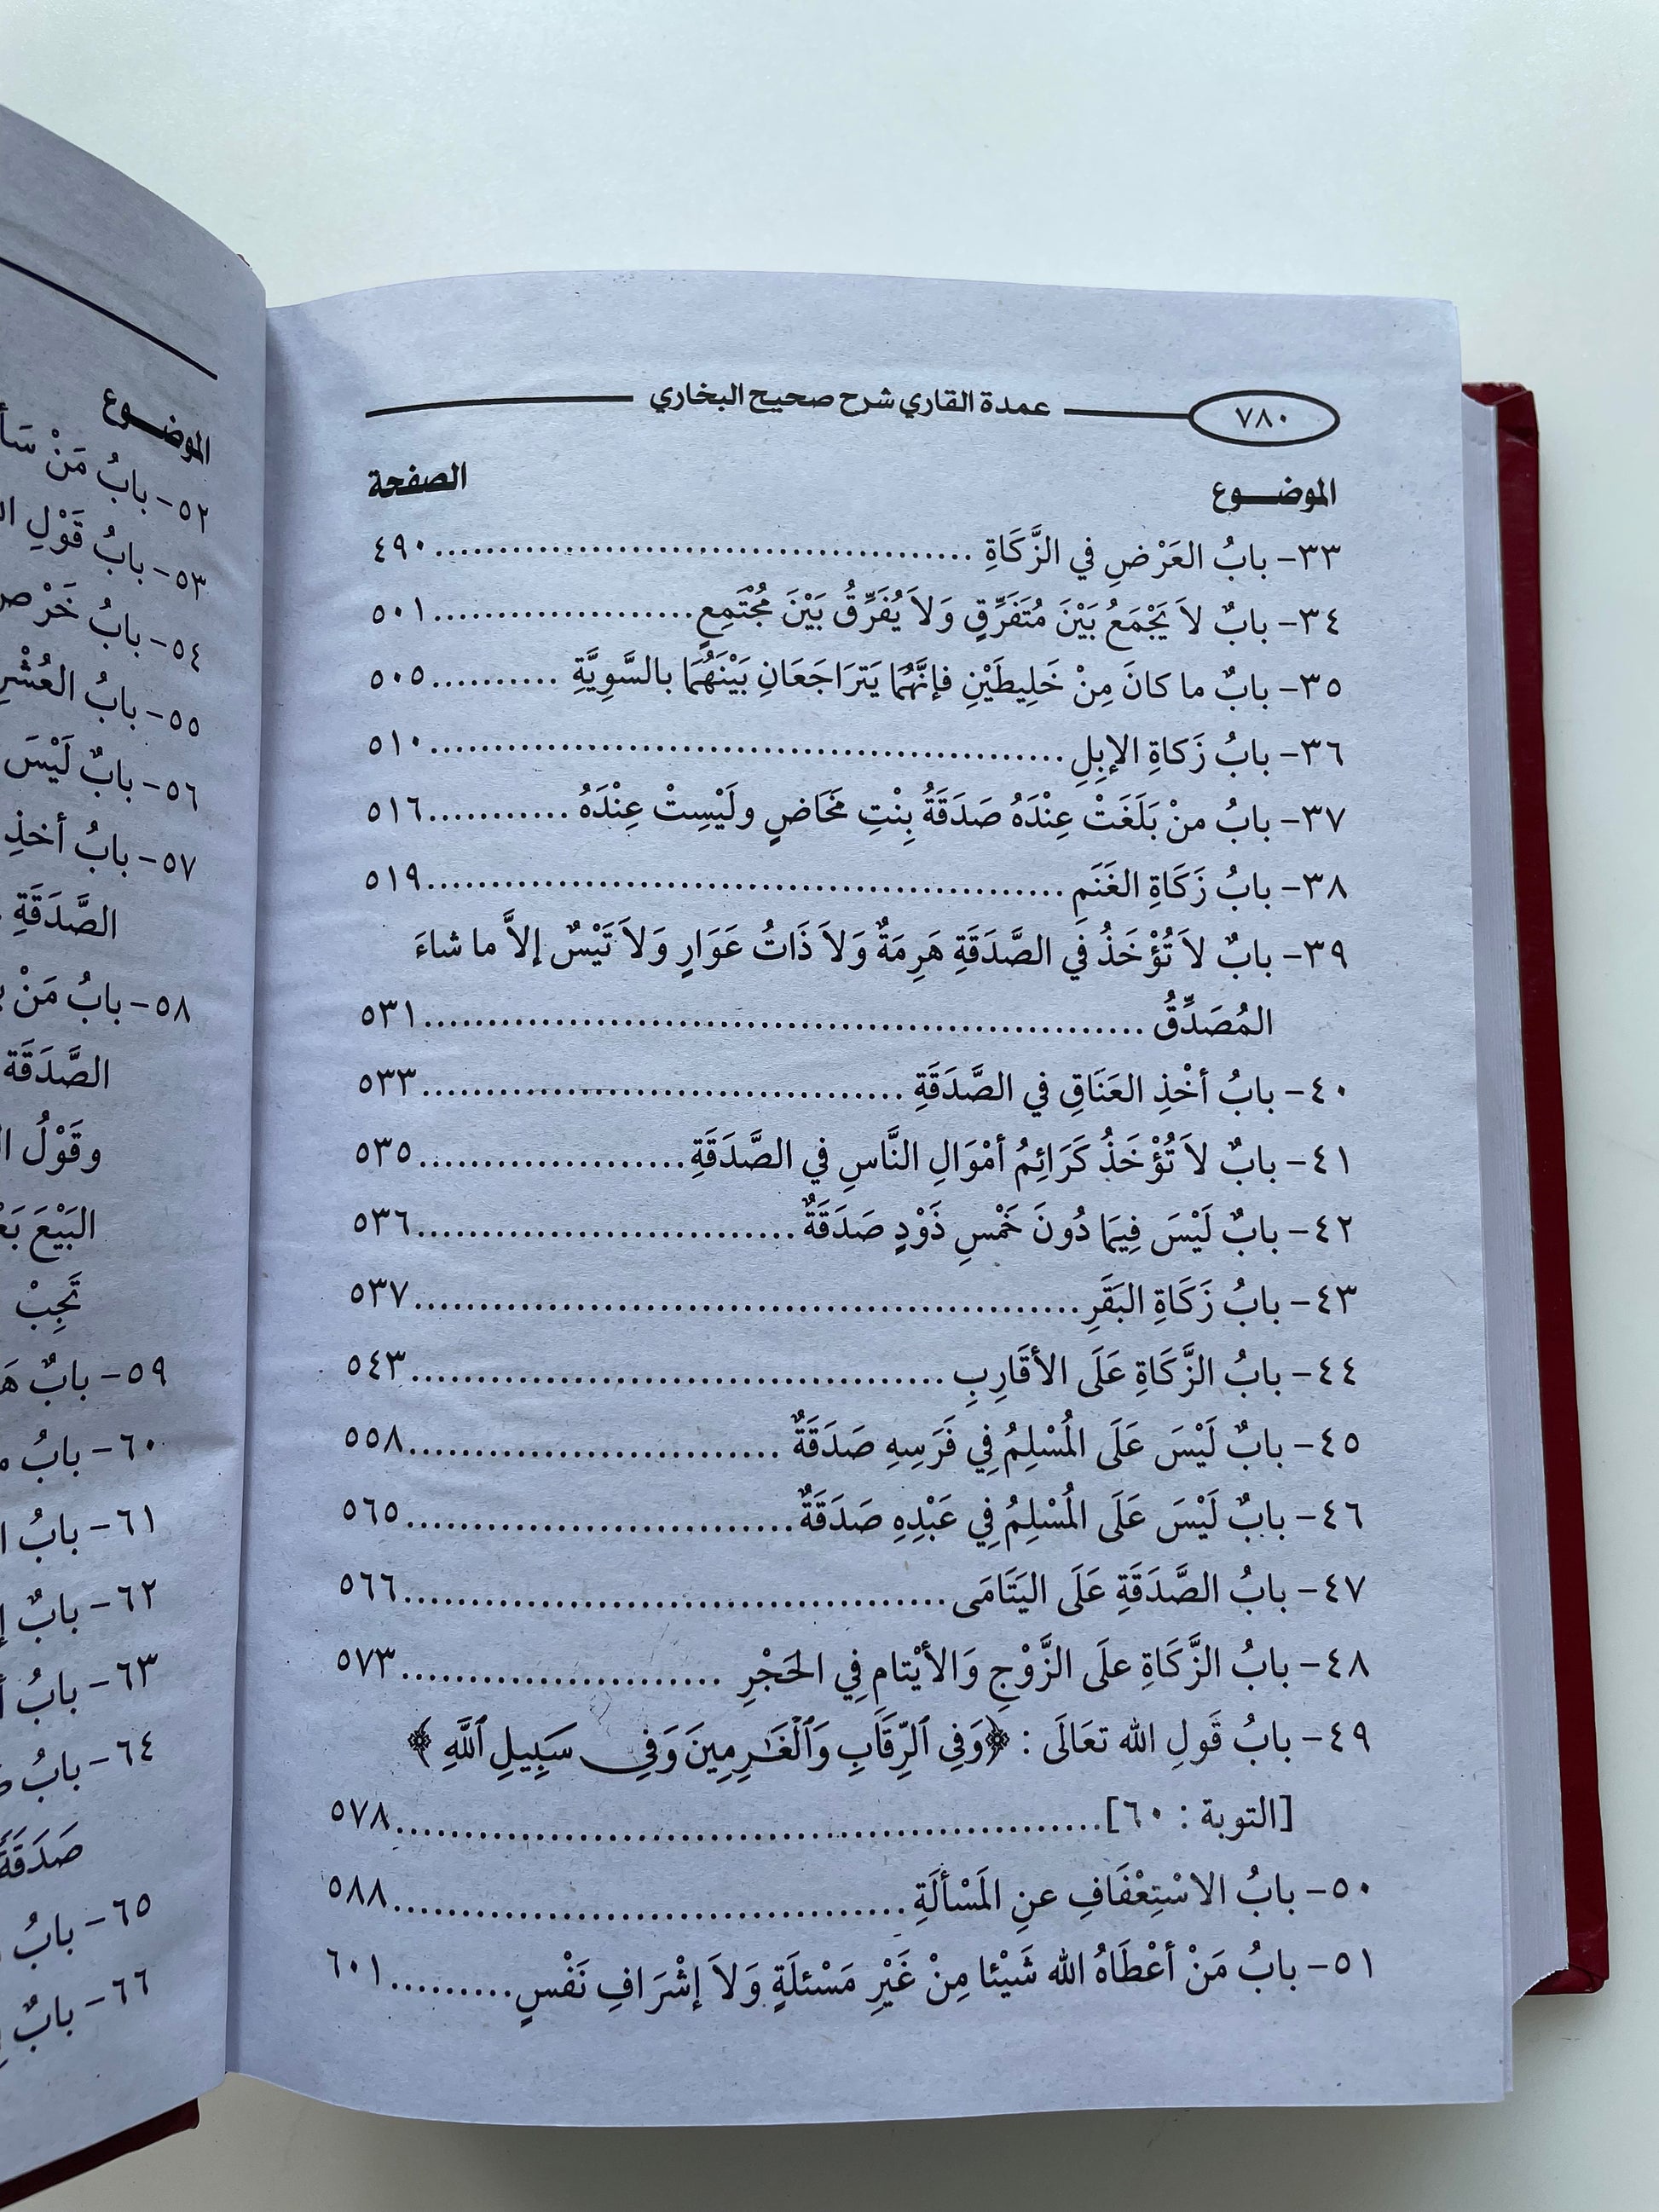 ٧٨٠ عمدة القاري شرح صحيح البخاري
الموضـــوع الصفحة
٣٣- بابُ العَرْضِ في الزَّكَاةِ ........................................ ٤٩٠
٣٤- بابٌ لاَ يَجْمَعُ بَيْنَ مُتَفَرِّقٍ وَلاَ يُفَرِّقُ بَيْنَ مُجْتَمِعٍ .................... ٥٠١
٣٥- بابٌ ما كانَ مِنْ خَلِيطَيْنِ فإنَّهُمَا يَتَرَاجَعَانِ بَيْنَهُمَا بالسَّوِيَّةِ .......... ٥٠٥
٣٦- بابُ زَكاةِ الإبِلِ ................................................ ٥١٠
٣٧- بابُ منْ بَلَغَتْ عِنْدَهُ صَدَقَةُ بِنْتِ مَخَاضٍ ولَيْسِتْ عِنْدَهُ ........... ٥١٦
٣٨- بابُ زَكَاةِ الغَنَمِ ................................................ ٥١٩
٣٩- بابٌ لاَ تُؤْخَذُ في الصَّدَقَةِ هَرِمَةٌ وَلاَ ذَاتُ عَوَارٍ وَلاَ تَيْسٌ إلاَّ ما شاءَ
المُصَدِّقُ ...................................................... ٥٣١
٤٠- بابُ أخْذِ العَنَاقِ في الصَّدَقَةِ .................................... ٥٣٣
٤١- بابٌ لاَ تُؤْخَذُ كَرَائِمُ أمْوَالِ النَّاسِ في الصَّدَقَةِ ..................... ٥٣٥
٤٢- بابٌ لَيْسَ فِيمَا دُونَ خَمْسِ ذَوْدٍ صَدَقَةٌ ............................. ٥٣٦
٤٣- بابُ زَكَاةِ البَقَرِ .................................................. ٥٣٧
٤٤- بابُ الزَّكَاةِ عَلَى الأقَارِبِ ........................................ ٥٤٣
٤٥- بابٌ لَيْسَ عَلَى المُسْلِمُ فِي فَرَسِهِ صَدَقَةٌ ............................ ٥٥٨
٤٦- بابٌ لَيْسَ عَلَى المُسْلِمُ فِي عَبْدِهِ صَدَقَةٌ ............................. ٥٦٥
٤٧- بابُ الصَّدَقَةِ عَلَى اليَتَامَى ......................................... ٥٦٦
٤٨- بابُ الزَّكَاةِ علَى الزَّوْجِ وَالأيْتامِ فِي الحَجْرِ ........................ ٥٧٣
٤٩- بابُ قَولِ الله تعَالَى : ﴿وَفِي ٱلرِّقَابِ وَٱلْغَٰرِمِينَ وَفِى سَبِيلِ ٱللَّهِ﴾
[التوبة : ٦٠] ..................................................... ٥٧٨
٥٠- بابُ الاسْتِعْفَافِ عنِ المَسْألَةِ ...................................... ٥٨٨
٥١- بابُ مَنْ أعْطَاهُ الله شَيْئا مِنْ غَيْرِ مَسْئلَةٍ وَلاَ إشْرَافِ نَفْسٍ ......... ٦٠١
الموضـــوع
٥٢- بابُ مَنْ
٥٣- بابُ قَوْلِ
٥٤- بابُ خَرْصِ
٥٥- بابُ العُشْرِ
٥٦- بابٌ لَيْسَ
٥٧- بابُ أخذِ
الصَّدَقَةِ
٥٨- بابُ مَنْ
الصَّدَقَة
وقَوْلُ
البَيْعَ
تَجِبْ
٥٩- بابٌ
٦٠- بابُ
٦١- بابُ
٦٢- بابٌ
٦٣- بابُ
٦٤- بابُ
صَدَقَةً
٦٥- بابُ
٦٦- بابٌ